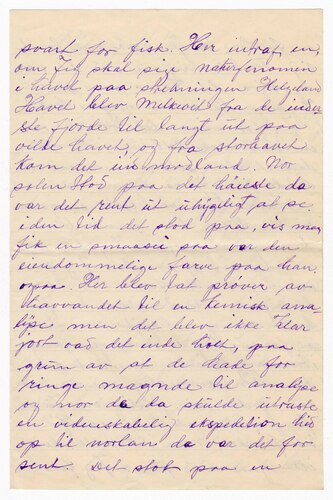 svart for fisk. Her intraf en,
om jeg skal sige naturfenomen
i havet paa strekningen Helgeland
Havet blev Melkevit fra de inder
ste fjorde til langt ut paa
vilde havet, og fra storhavet
kom det ind mod land. Nor
solen stod paa det høieste da
var det rent ut uhyggeligt at se
i den tid det stod paa, vis man
fik en smaasei saa var den
eiendommelige farve paa han
ogsaa. Her blev tat prøver av
havvandet til en kemisk ana
lyse men det blev ikke klar
jort vad det inde holt, paa
grun av at de hade for
ringe mængde til analyse
og nor da da skulde utruste
en videnskabelig ekspedition hid
op til norlan da var det for
sent. Det stot paa en